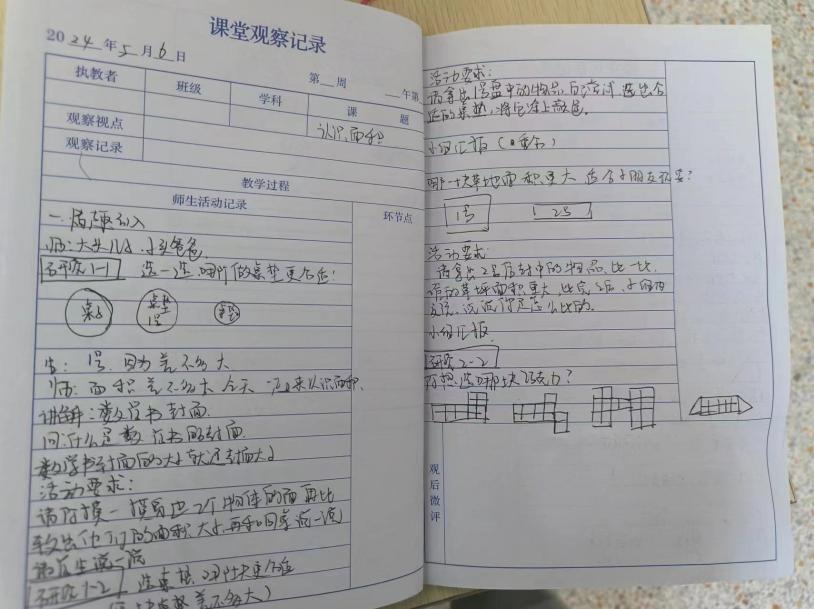 课堂观察记录
2024年5月6日
第 周
午第
执教者
班级
学科
课 题
认识面积
观察视点
观察记录
教学过程
师生活动记录
环节点
一.情趣引入
师:大头儿子,小头爸爸.
研究1-1 选一选,哪个做桌垫更合适:
桌子
桌垫
1号
生: 1号,因为差不多大
师: 面积差不多大 今天一起来认识面积.
讲解:数学书封面.
问:什么是数学书的封面.
数学书封面的大小就是封面大小
活动要求:
请你摸一摸
2个物体的面 再比
较出他们的面积大小,再和同学说一说
研究1-2
差不多大)
活动要求:
请拿出1号盘中的物品,自己试,选出合
适的桌垫,将它涂上颜色.
小组汇报(重合)
哪一块草地面积更大 适合小朋友玩耍?
1号
2号
活动要求:
请拿出2号信封中的物品,比一比,
的草坪面积更大,比完之后,小组内
交流,说说你是怎么比的.
小组汇报.
研究2-2
选哪块巧克力?
观后微评